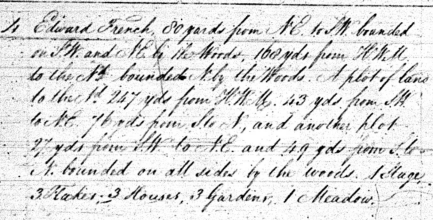 4 Edward French, 80 yards from N.E. to S.W. bounded
on S.W. and N.E. by the Woods, 168 yds from H.W.M.
to the Nd bounded N. by the Woods. A plot of land
to the Nd 247 yds from H.W.M. 43 yds from S.W.
to N.E. 76 yds from S. to N, and another plot
27 yds from S.W. to N.E. and 49 yds from S. to
N. bounded on all sides by the woods. 1 Stage
3 Flakes, 3 Houses, 3 Gardens, 1 Meadow.